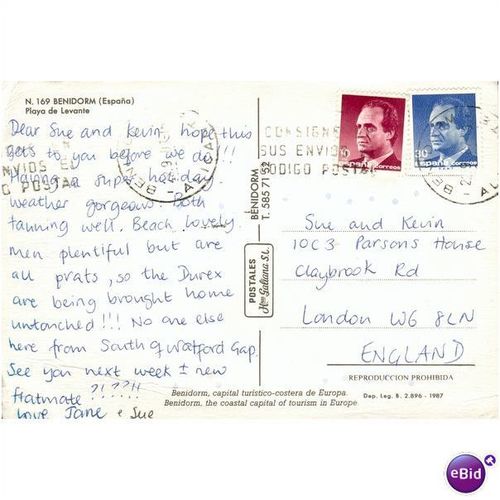 N. 169 BENIDORM (España)
Playa de Levante
Dear Sue and Kevin, hope this
gets to you before we do!!!
Having a super holiday.
weather gorgeous. both
tanning well. Beach lovely
men plentiful but are
all prats, so the Durex
are being brought home
untouched!!! No one else
here from South of Watford Gap.
See you next week + new
flatmate?!??!!
Love Jane & Sue
BENIDORM
T. 585 71 52
POSTALES
Hnos Galiana S.L.
CONSIGNE
SUS ENVIOS
CODIGO POSTAL
30
España correos
Sue and Kevin
10C3 Parsons House
Claybrook Rd
London W6 8LN
ENGLAND
REPRODUCCION PROHIBIDA
Dep. Leg. B. 2.896 - 1987
Benidorm, capital turístico-costera de Europa.
Benidorm, the coastal capital of tourism in Europe.
eBid